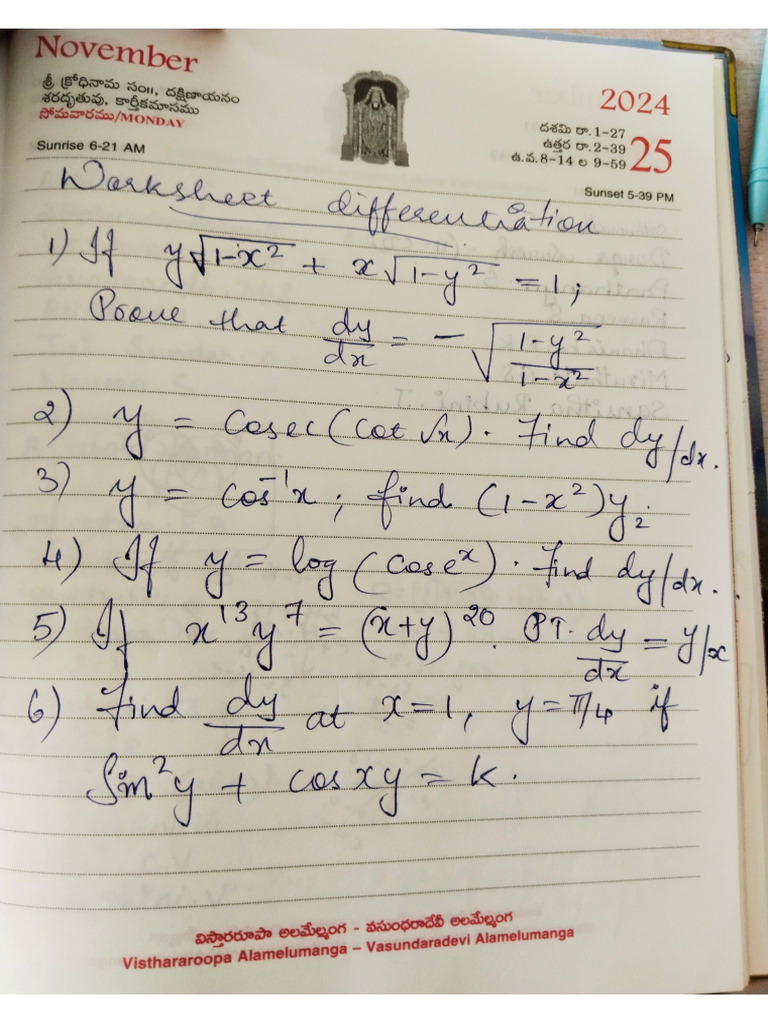 November
శ్రీ క్రోధినామ సం॥, దక్షిణాయనం
శరదృతువు, కార్తీకమాసము
సోమవారము/MONDAY
Sunrise 6-21 AM
2024
దశమి రా.1-27
ఉత్తర రా.2-39
ఉ.వ.8-14 ల 9-59
25
Sunset 5-39 PM
Worksheet differentiation
1) If y√(1-x²) + x√(1-y²) = 1;
Prove that dy/dx = - √((1-y²)/(1-x²))
2) y = Cosec(Cot √x). Find dy/dx.
3) y = Cos⁻¹x; find (1-x²)y₂.
4) If y = log (Cos eˣ). Find dy/dx.
5) If x¹³y⁷ = (x+y)²⁰. PT. dy/dx = y/x
6) Find dy/dx at x=1, y=π/4 if
Sin²y + cos xy = K.
విస్తారరూపా అలమేల్మంగ - వసుంధరాదేవీ అలమేల్మంగ
Visthararoopa Alamelumanga – Vasundaradevi Alamelumanga